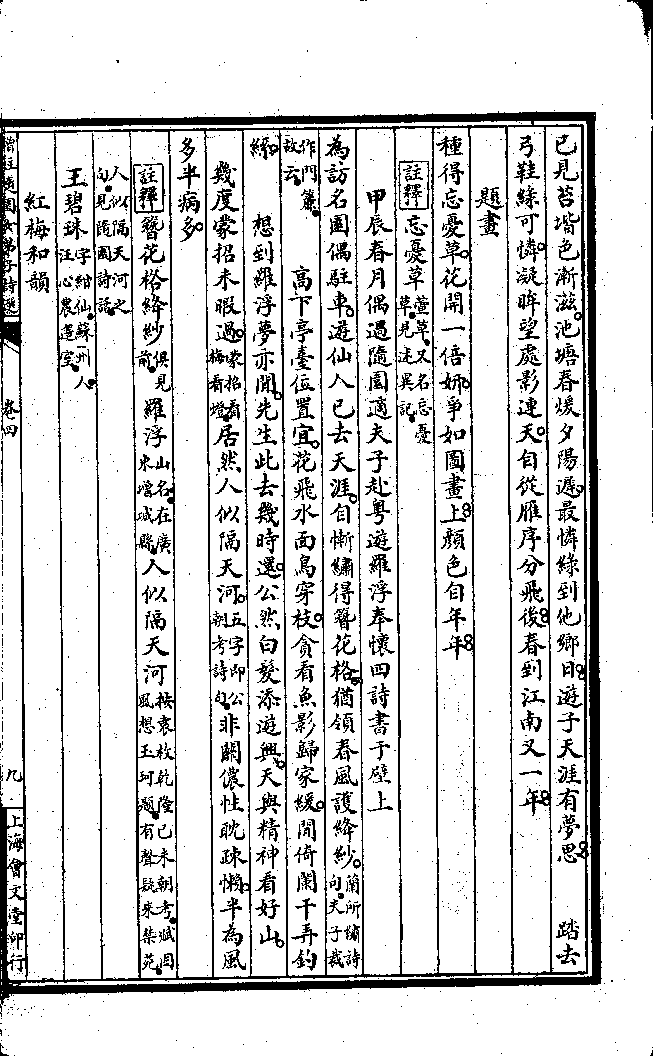 已見苔堦色漸滋。池塘春煖夕陽遲。最憐綠到他鄉日。遊子天涯有夢思。 踏去
弓鞋綠可憐。凝眸望處影連天。自從雁序分飛後。春到江南又一年。
題畫
種得忘憂草。花開一倍姸。爭如圖畫上。顏色自年年。
註釋 忘憂草 萱草。又名忘憂草。見述異記。
甲辰春月偶過隨園適夫子赴粵遊羅浮奉懷四詩書于壁上
為訪名園偶駐車。遊仙人已去天涯。自慚繡得簪花格。猶領春風護絳紗。蘭所繡詩句。夫子裁
作門簾。故云。 高下亭臺位置宜。花飛水面鳥穿枝。貪看魚影歸家緩。閒倚闌干弄釣
絲。 想到羅浮夢亦閒。先生此去幾時還。公然白髮添遊興。天與精神看好山。
幾度蒙招未暇過。蒙招看梅看燈。居然人似隔天河。五字即公朝考詩句。非關儂性耽疎懶。半為風
多半病多。
註釋 簪花格絳紗 俱見前。 羅浮 山名。在廣東增城縣。 人似隔天河 按袁枚乾隆己未朝考。賦因風想玉珂題。有聲疑來禁苑。
人似隔天河之句。見隨園詩話。
王碧珠 字紺仙。蘇州人。汪心農簉室。
紅梅和韻
增註隨園女弟子詩選
卷四
九
上海會文堂印行